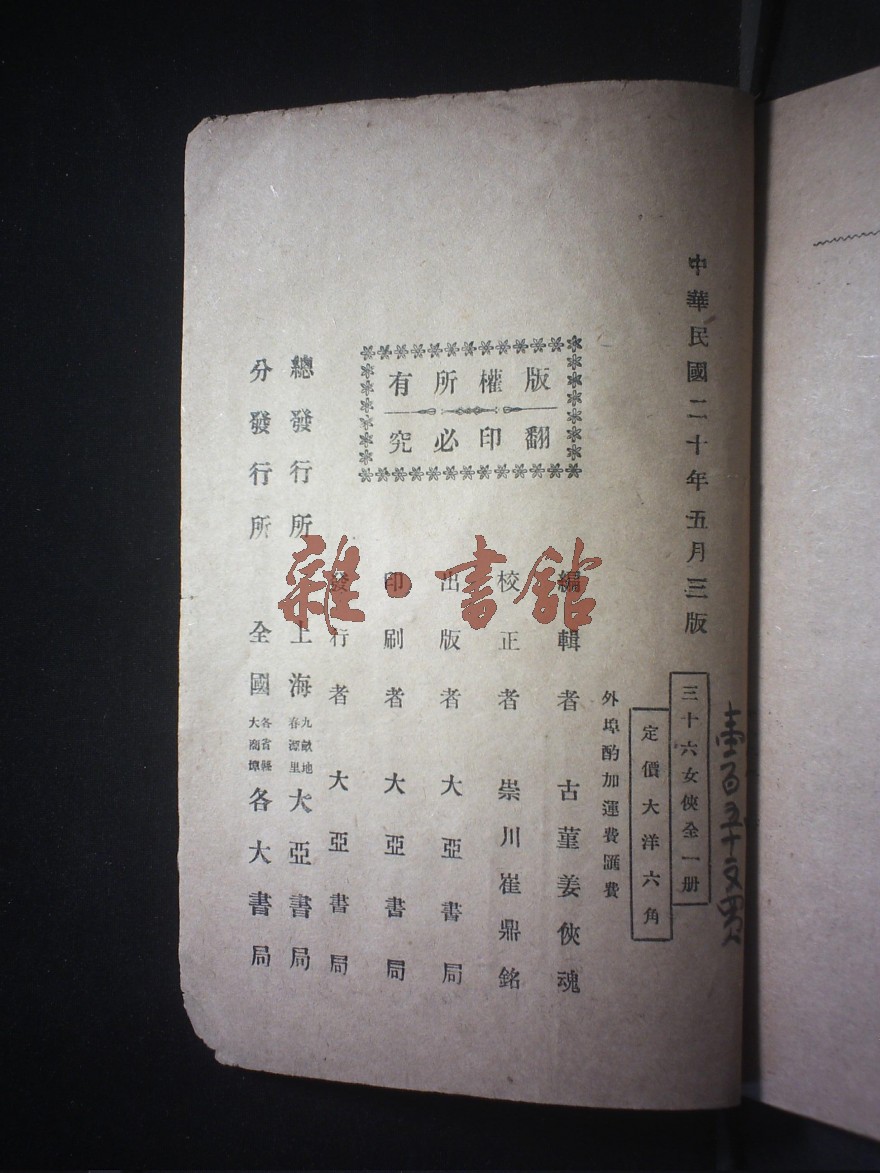 中華民國二十年五月三版
三十六女俠全一册
定價大洋六角
外埠酌加運費匯費
版權所有
翻印必究
編輯者 古堇姜俠魂
校正者 崇川崔鼎銘
出版者 大亞書局
印刷者 大亞書局
發行者 大亞書局
總發行所 上海九畝地春源里大亞書局
分發行所 全國各省縣大商埠各大書局
雜·書館